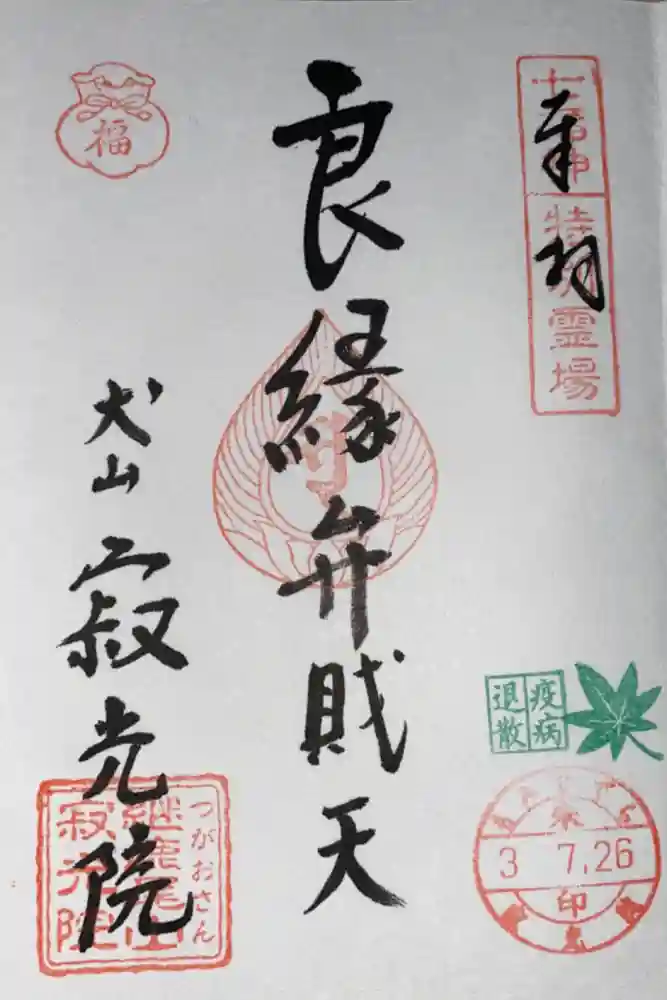 奉拝
七福神
特別霊場
良縁弁財天
福
犬山
寂光院
つがおさん
継鹿尾山
寂光院
疫病
退散
3 7.26
印